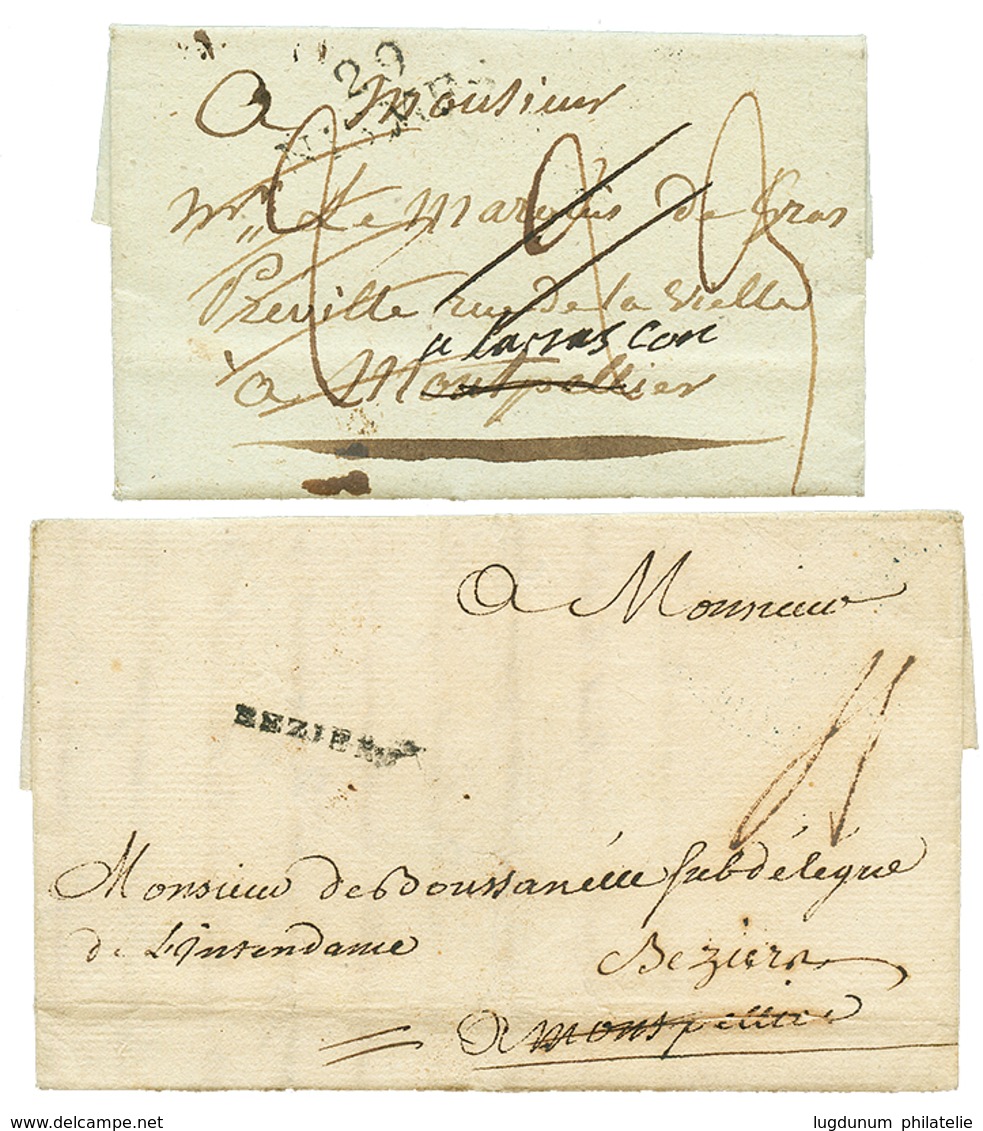 29
N. MES
a Monsieur
Mr Le Marquis de Gras
Preville rue De la Vielle
a Tarrascon
a Montpellier
a Monsieur
BEZIERS
Monsieur de Boussanelle subdélégué
de L'Intendance
Beziers
a Montpellier
lugdunum philatelie